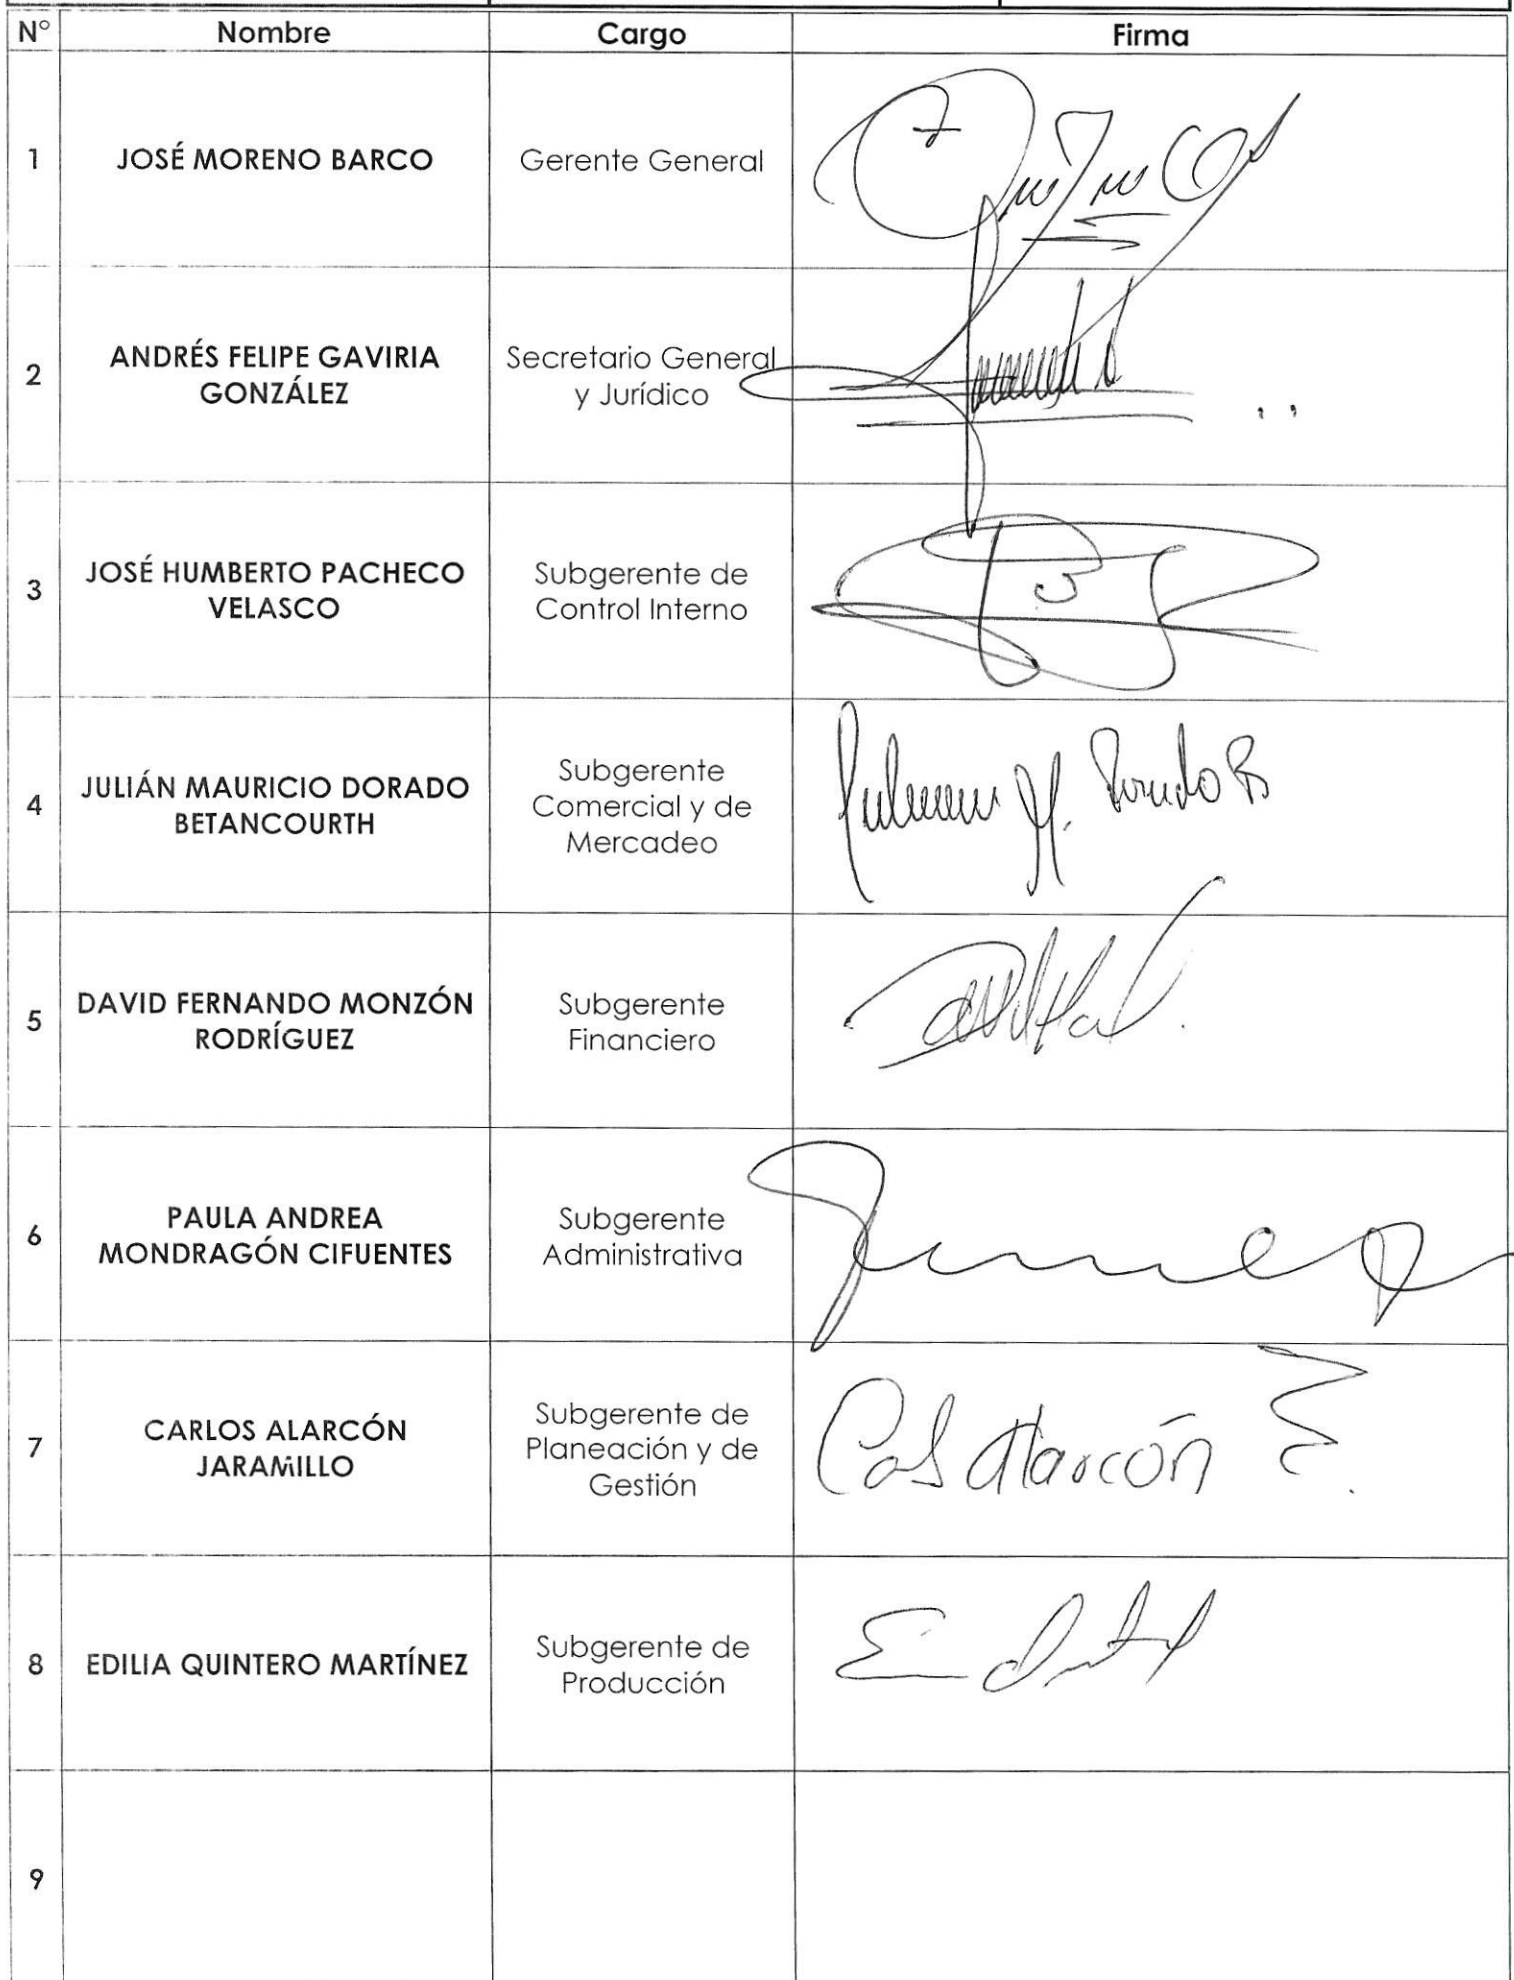 N° Nombre Cargo Firma
1 JOSÉ MORENO BARCO Gerente General
2 ANDRÉS FELIPE GAVIRIA GONZÁLEZ Secretario General y Jurídico
3 JOSÉ HUMBERTO PACHECO VELASCO Subgerente de Control Interno
4 JULIÁN MAURICIO DORADO BETANCOURTH Subgerente Comercial y de Mercadeo
5 DAVID FERNANDO MONZÓN RODRÍGUEZ Subgerente Financiero
6 PAULA ANDREA MONDRAGÓN CIFUENTES Subgerente Administrativa
7 CARLOS ALARCÓN JARAMILLO Subgerente de Planeación y de Gestión Alarcón
8 EDILIA QUINTERO MARTÍNEZ Subgerente de Producción
9